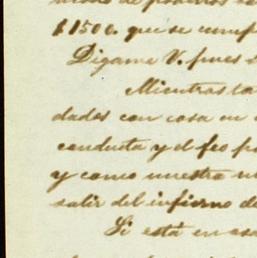 de
$1500. que se
Digame V. pues
Mientras
dades con cosa en
conducta y el feo
y como nuestra
salir del infierno de
Si está en